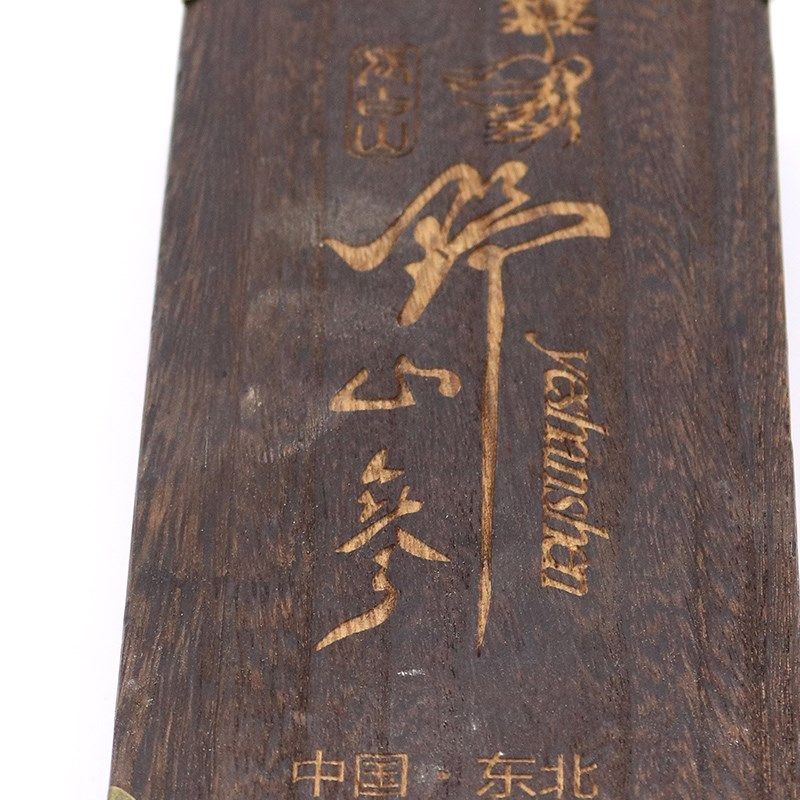 野山参
yeshanshen
中国·东北